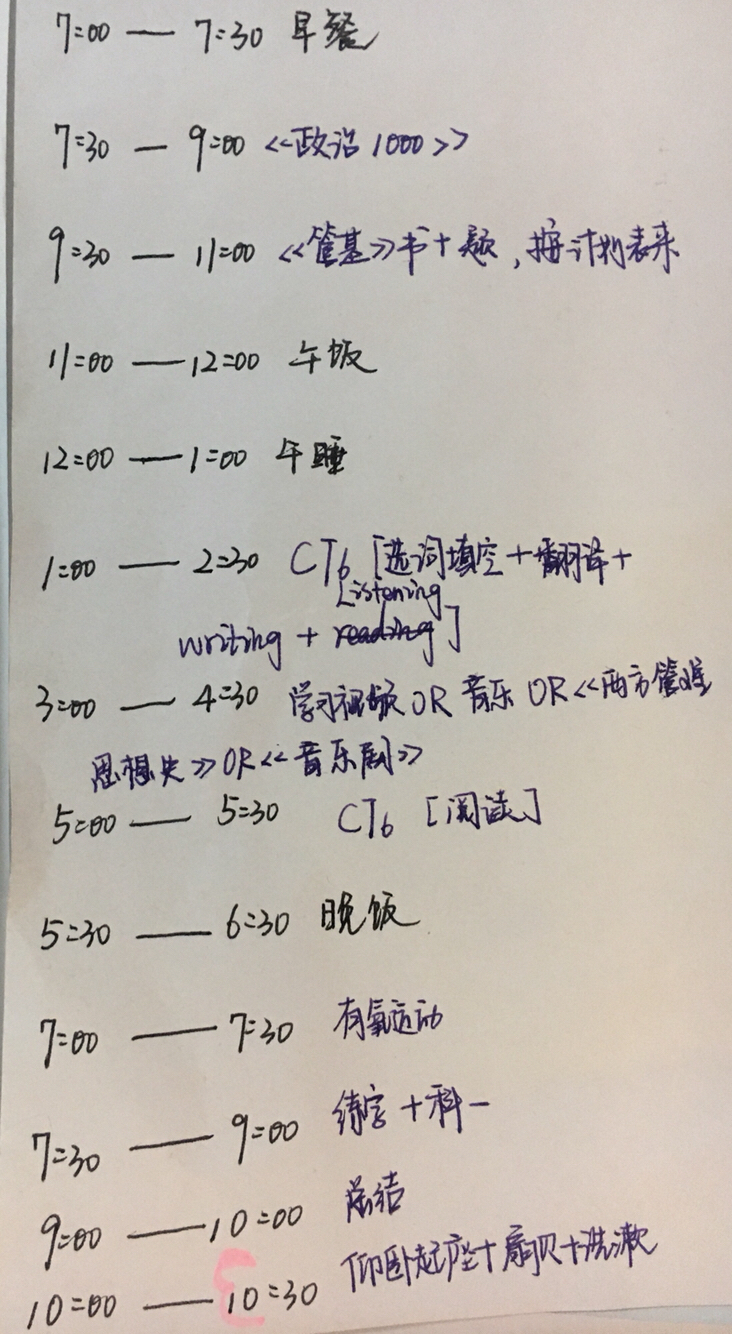 7:00 — 7:30 早餐
7:30 — 9:00 <<政治1000>>
9:30 — 11:00 <<管基>>书+题,按计划表来
11:00 — 12:00 午饭
12:00 — 1:00 午睡
1:00 — 2:30 CT6 [选词填空+翻译+
Listening
writing + reading]
3:00 — 4:30 学习视频 OR 音乐 OR <<西方管理
思想史>> OR <<音乐剧>>
5:00 — 5:30 CT6 [阅读]
5:30 — 6:30 晚饭
7:00 — 7:30 有氧运动
7:30 — 9:00 练字+科一
9:00 — 10:00 总结
10:00 — 10:30 仰卧起座+扇贝+洗漱